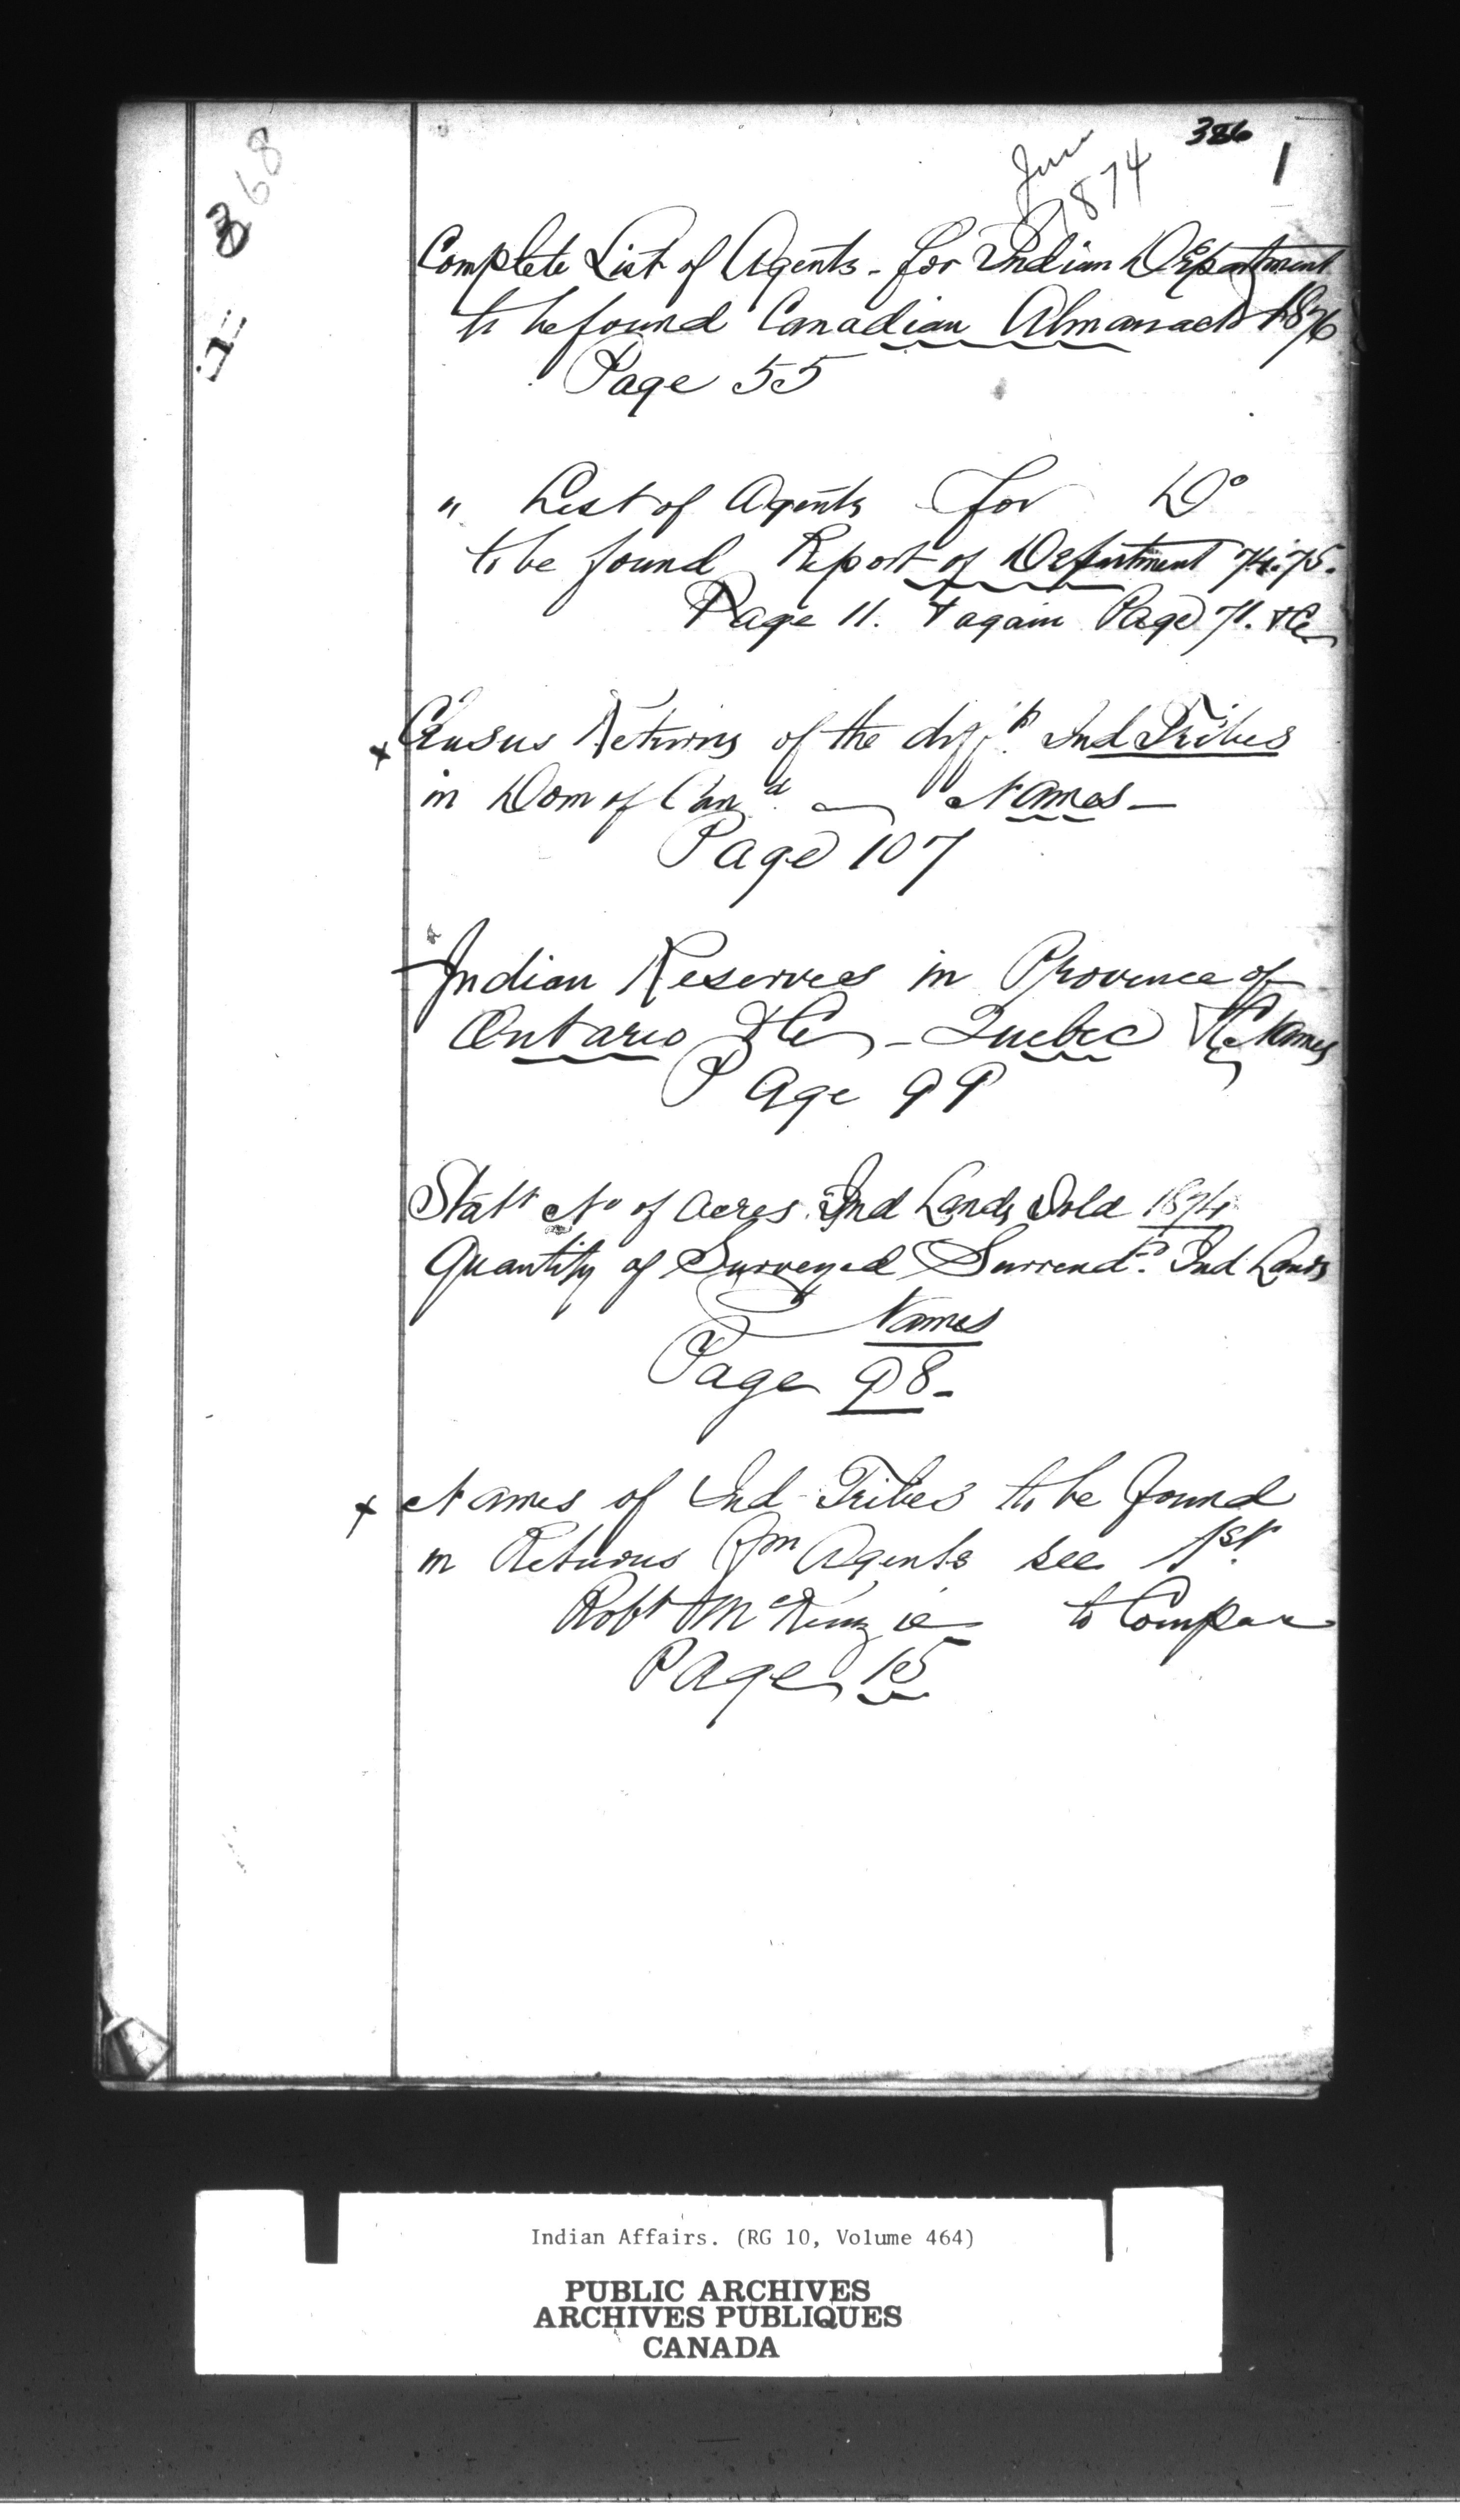 386
1
June
1874
368
Complete List of Agents - for Indian Department
to be found Canadian Almanack 1876
Page 55
" List of Agents for Do
to be found Report of Department 74.75.
Page 11. & again Page 71. &c
x Census Returns of the difft. Ind Tribes
in Dom of Can d. Names —
Page 107
Indian Reserves in Province of
Ontario &c - Quebec &c Names
Page 99
Statt No of acres Ind Lands Sold 1874
Quantity of Surveyed Surrendd. Ind Lands
Names
Page 98 -
x Names of Ind Tribes to be found
in Returns fm Agents see 1st.
Robt McKenzie to Compare
Page 15
Indian Affairs. (RG 10, Volume 464)
PUBLIC ARCHIVES
ARCHIVES PUBLIQUES
CANADA